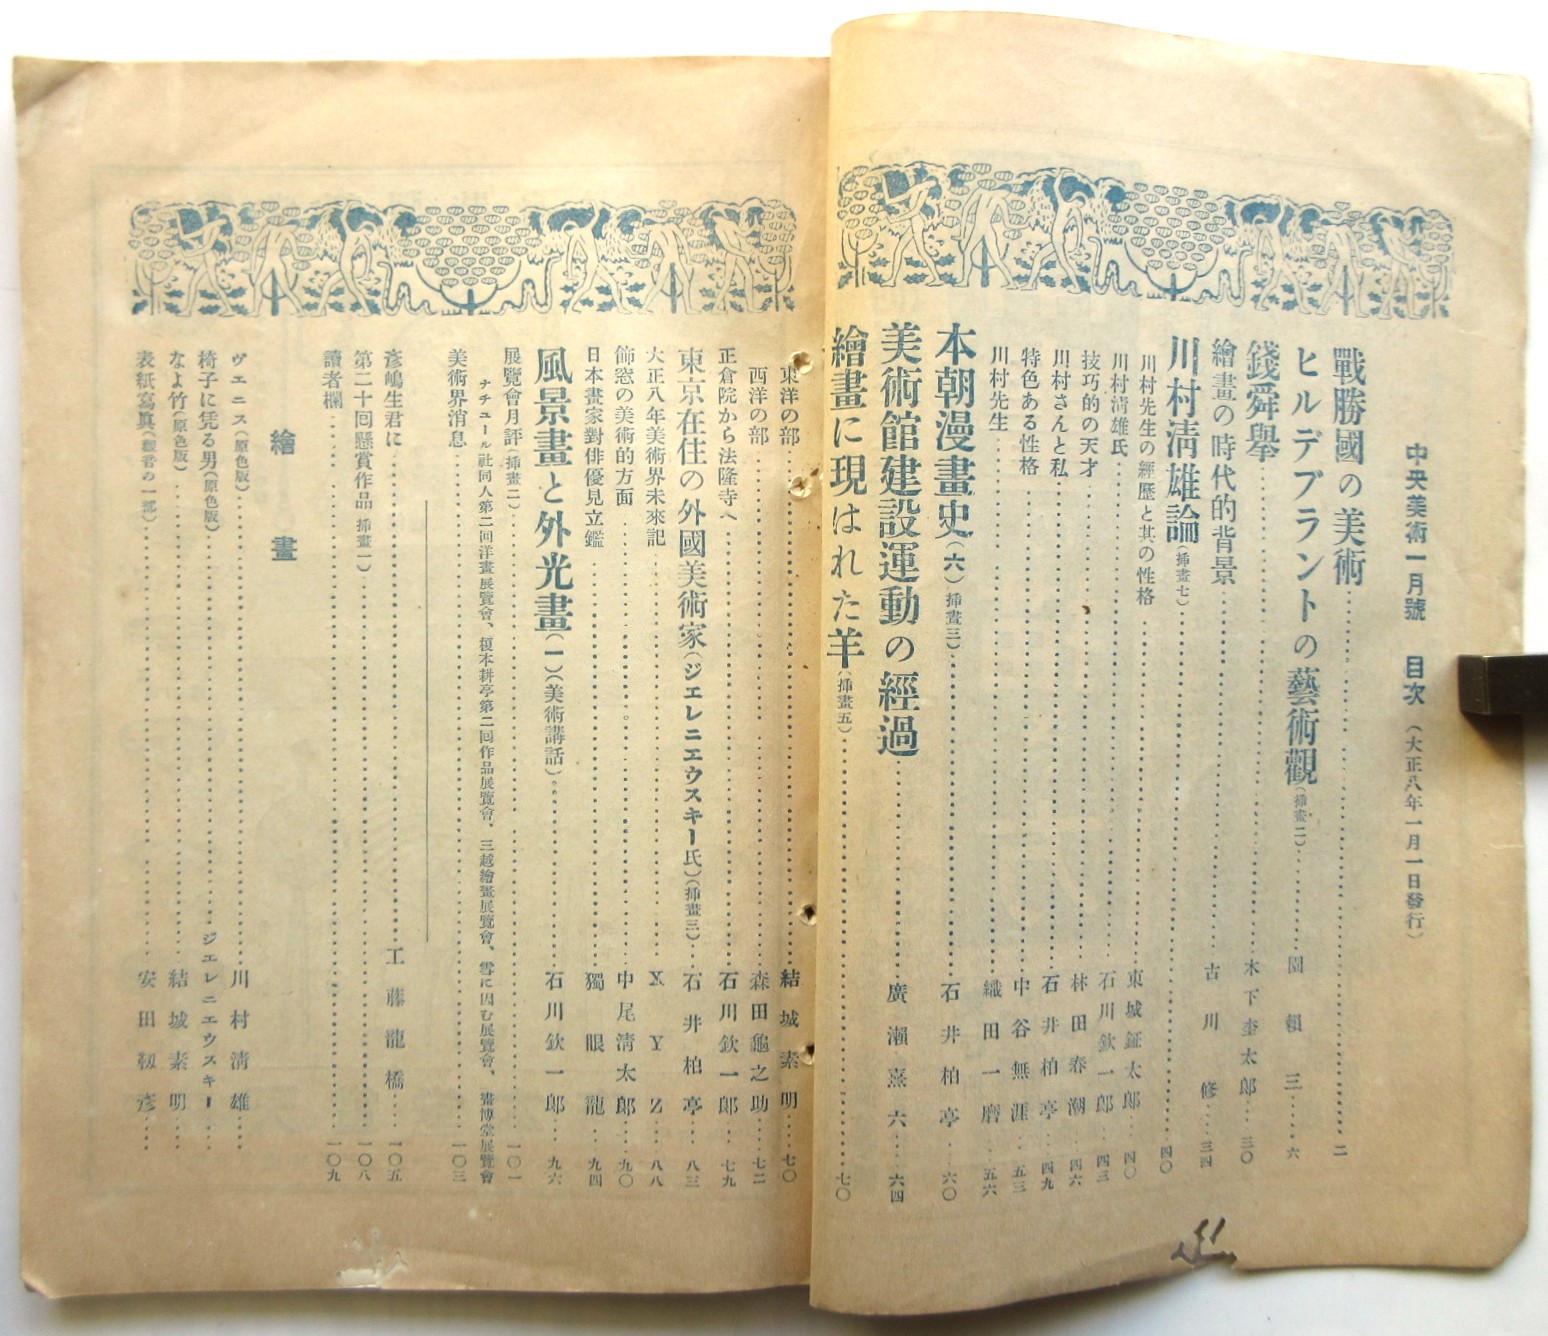 中央美術一月號 目次（大正八年一月一日發行）
戰勝國の美術 二
ヒルデブラントの藝術觀（揷畫二） 園賴三 六
錢舜擧 木下杢太郎 三〇
繪畫の時代的背景 古川修 三四
川村淸雄論（揷畫七） 四〇
川村先生の經歷と其の性格 東城鉦太郎 四〇
川村淸雄氏 石川欽一郎 四三
技巧的の天才 林田春潮 四六
川村さんと私 石井柏亭 四九
特色ある性格 中谷無涯 五三
川村先生 織田一磨 五六
本朝漫畫史（六）（揷畫三） 石井柏亭 六〇
美術館建設運動の經過 廣瀨熹六 六四
繪畫に現はれた羊（揷畫五） 七〇
東洋の部 結城素明 七〇
西洋の部 森田龜之助 七二
正倉院から法隆寺へ 石川欽一郎 七九
東京在住の外國美術家（ジエレニエウスキー氏）（揷畫三） 石井柏亭 八三
大正八年美術界未來記 X Y Z 八八
飾窓の美術的方面 中尾淸太郎 九〇
日本畫家對俳優見立鑑 獨眼龍 九四
風景畫と外光畫（一）（美術講話） 石川欽一郎 九六
展覽會月評（揷畫二） 一〇一
ナチュール社同人第二回洋畫展覽會、榎本耕亭第二回作品展覽會、三越繪畫展覽會、雪に因む展覽會、畫博堂展覽會
美術界消息 一〇三
彥嶋生君に 工藤龍橋 一〇五
第二十回懸賞作品（揷畫一） 一〇八
讀者欄 一〇九
繪畫
ヴエニス（原色版） 川村淸雄
椅子に凭る男（原色版） ジエレニエウスキー
なよ竹（原色版） 結城素明
表紙寫眞（觀音の一部） 安田靱彥